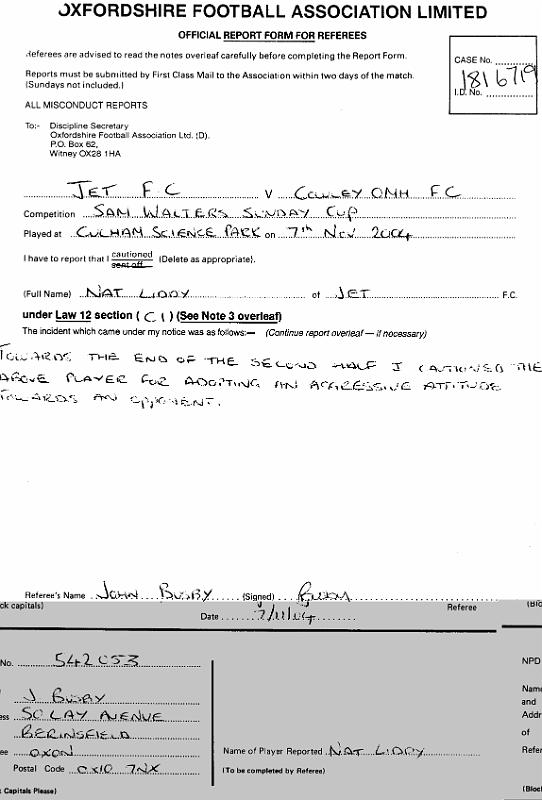 OXFORDSHIRE FOOTBALL ASSOCIATION LIMITED
OFFICIAL REPORT FORM FOR REFEREES
Referees are advised to read the notes overleaf carefully before completing the Report Form.
Reports must be submitted by First Class Mail to the Association within two days of the match.
(Sundays not included.)
CASE No.
1816719
I.D. No.
ALL MISCONDUCT REPORTS
To:- Discipline Secretary
Oxfordshire Football Association Ltd. (D).
P.O. Box 62,
Witney OX28 1HA
JET F C V COWLEY OMH F C
Competition SAM WALTERS SUNDAY CUP
Played at CULHAM SCIENCE PARK on 7th NOV 2004
I have to report that I cautioned sent off (Delete as appropriate).
(Full Name) NAT LIDDY of JET F.C.
under Law 12 section (C1) (See Note 3 overleaf)
The incident which came under my notice was as follows:— (Continue report overleaf — if necessary)
TOWARDS THE END OF THE SECOND HALF I CAUTIONED THE
ABOVE PLAYER FOR ADOPTING AN AGGRESSIVE ATTITUDE
TOWARDS AN OPPONENT.
Referee's Name JOHN BUSBY (Signed) Busby
ck capitals) Referee (Blo
Date 7/11/04
No. 542053
J BUSBY
ess 50 LAY AVENUE
BERINSFIELD
ee OXON
Postal Code OX10 7NX
k Capitals Please)
Name of Player Reported NAT LIDDY
(To be completed by Referee)
NPD
Name
and
Addr
of
Refer
(Block